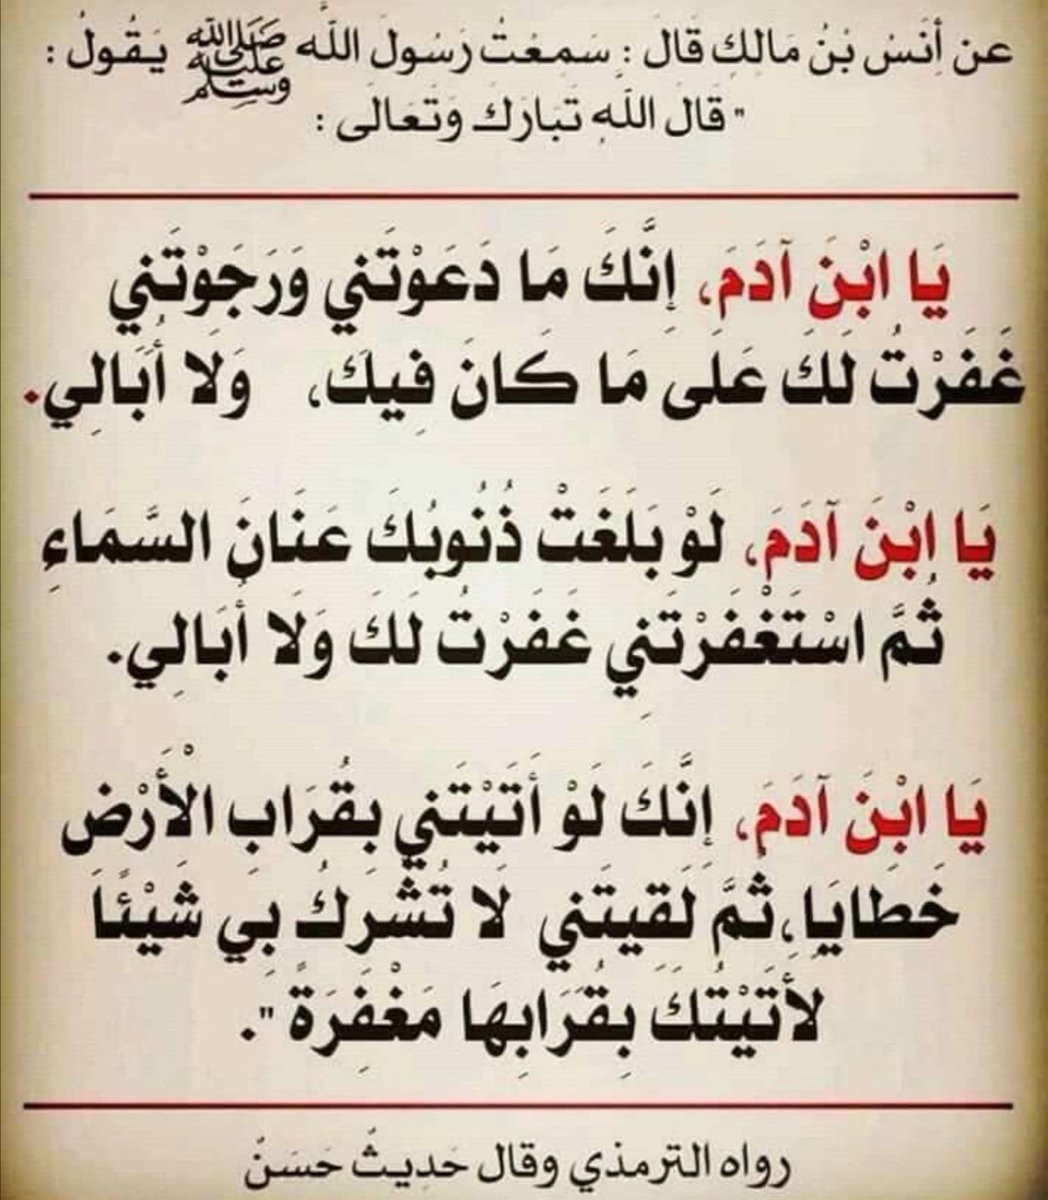 عن أَنَسْ بْنُ مَالِكِ قَالَ : سَمِعْتُ رَسُولَ اللَّه ﷺ يَقُولُ :
" قَالَ اللَّهِ تَبَارَكَ وَتَعَالَى :
يَا ابْنَ آدَمَ، إِنَّكَ مَا دَعَوْتَنِي وَرَجَوْتَنِي
غَفَرْتُ لَكَ عَلَى مَا كَانَ فِيكَ، وَلَا أُبَالِي.
يَا ابْنَ آدَمَ، لَوْ بَلَغَتْ ذُنُوبُكَ عَنَانَ السَّمَاءِ
ثُمَّ اسْتَغْفَرْتَنِي غَفَرْتُ لَكَ وَلَا أُبَالِي.
يَا ابْنَ آدَمَ، إِنَّكَ لَوْ أَتَيْتَنِي بِقُرَابِ الْأَرْضِ
خَطَايَا، ثُمَّ لَقِيتَنِي لَا تُشْرِكُ بِي شَيْئًا
لأَتَيْتُكَ بِقُرَابِهَا مَغْفِرَةً ".
رواه الترمذي وقال حَدِيثٌ حَسَنٌ